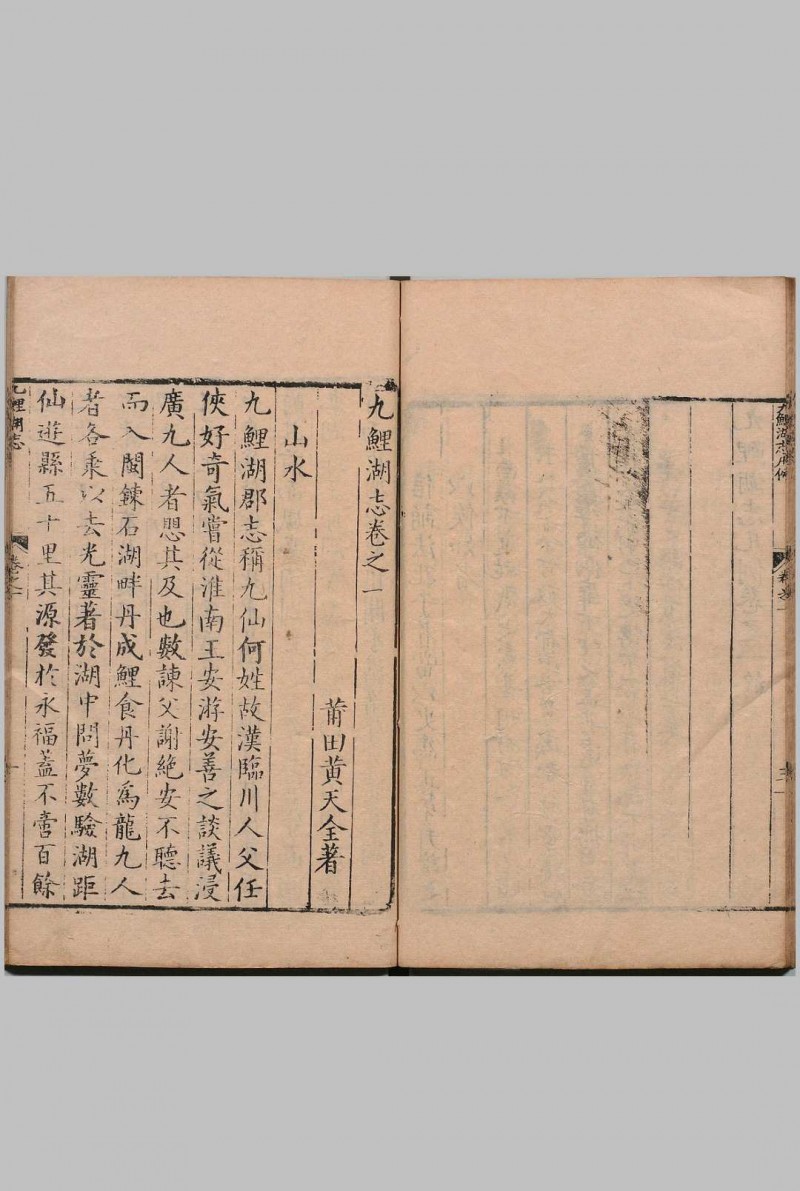 九鯉湖志卷之一
莆田黃天全著
山水
九鯉湖郡志稱九仙何姓故漢臨川人父任
俠好奇氣嘗從淮南王安游安善之談議浸
廣九人者思其及也數諫父謝絕安不聽去
而入閩鍊石湖畔丹成鯉食丹化為龍九人
者各乘以去光靈著於湖中問夢數驗湖距
仙遊縣五十里其源發於永福蓋不啻百餘
九鯉湖志
卷之一
一